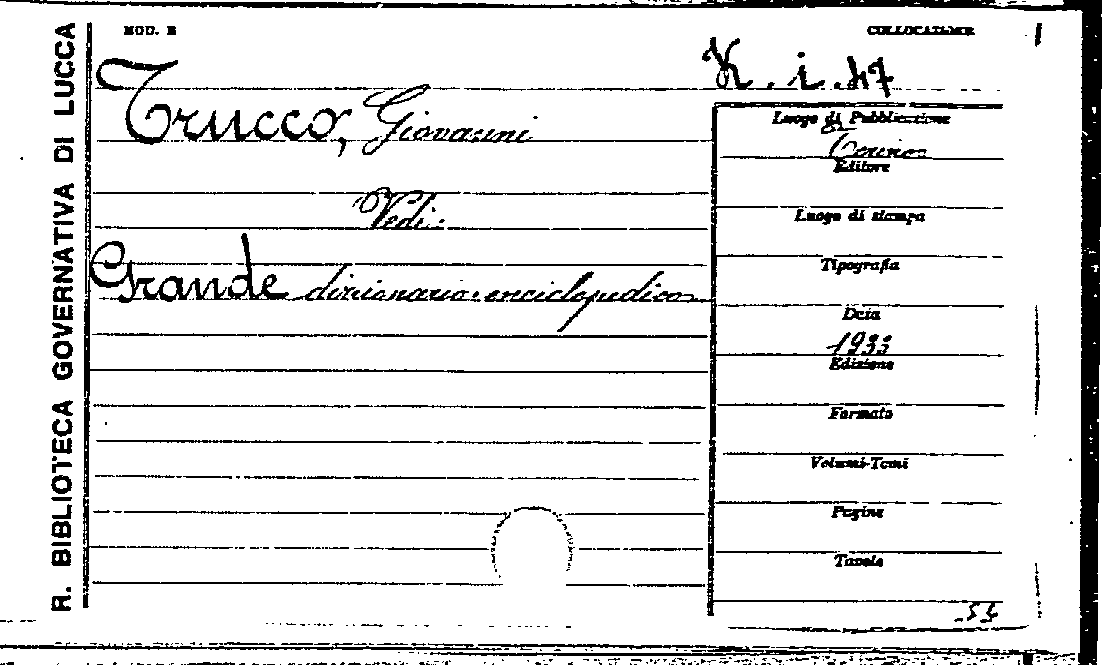 R. BIBLIOTECA GOVERNATIVA DI LUCCA
MOD. B
COLLOCAZIONE
K. i. 47
Trucco, Giovanni
Vedi:
Grande dizionario enciclopedico
Luogo di Pubblicazione
Torino
Editore
Luogo di stampa
Tipografia
Data
1933
Edizione
Formato
Volumi-Tomi
Pagine
Tavole